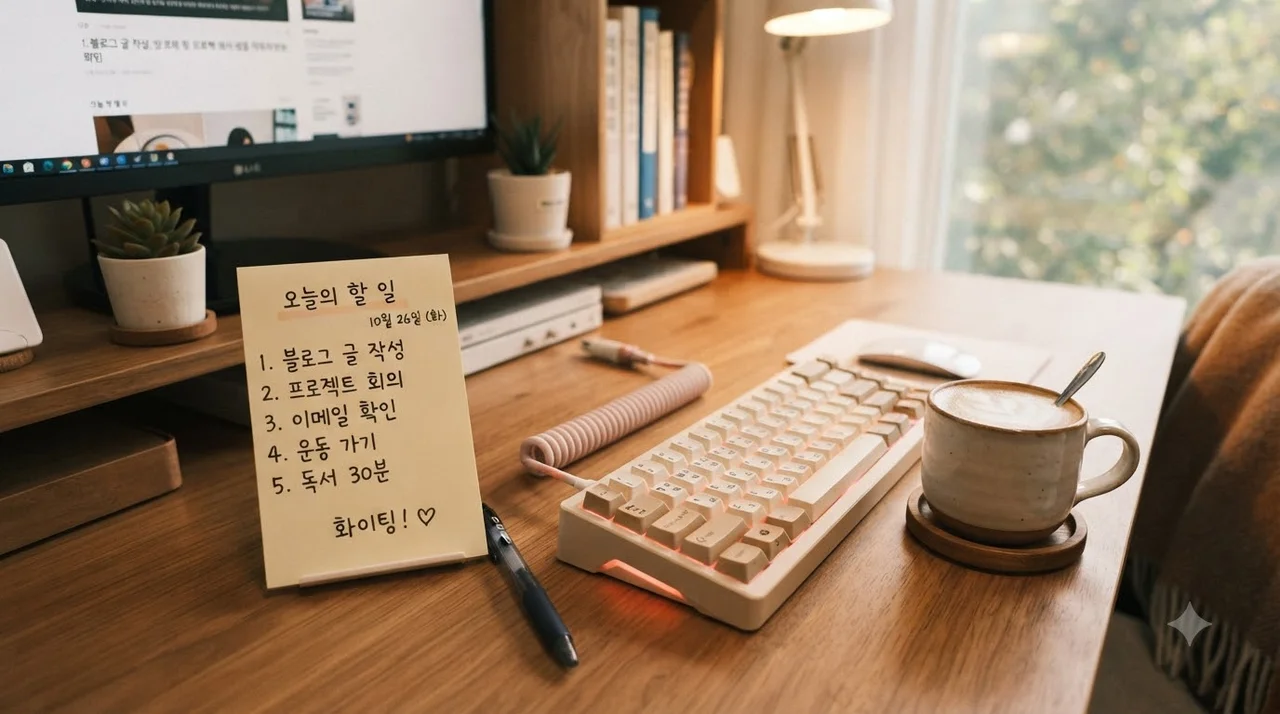 1. 블로그 글 작성,
오늘의 할 일
10월 26일 (화)
1. 블로그 글 작성
2. 프로젝트 회의
3. 이메일 확인
4. 운동 가기
5. 독서 30분
화이팅! ♡
LG